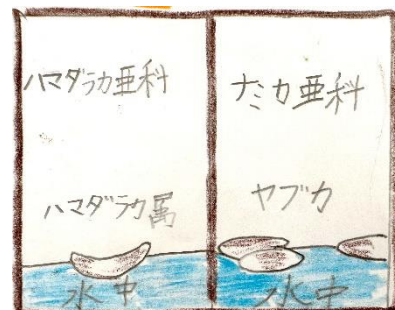 ハマダラカ亜科
ハマダラカ属
水中
ナミカ亜科
ヤブカ
水中